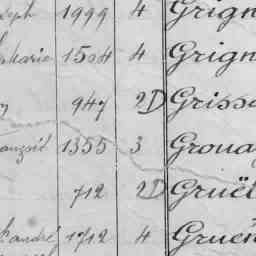 seph 1999 4 Grign
1504 4 Grign
947 2D Grisso
ançois 1355 3 Groua
712 2D Gruët
andré 1712 4 Gruën